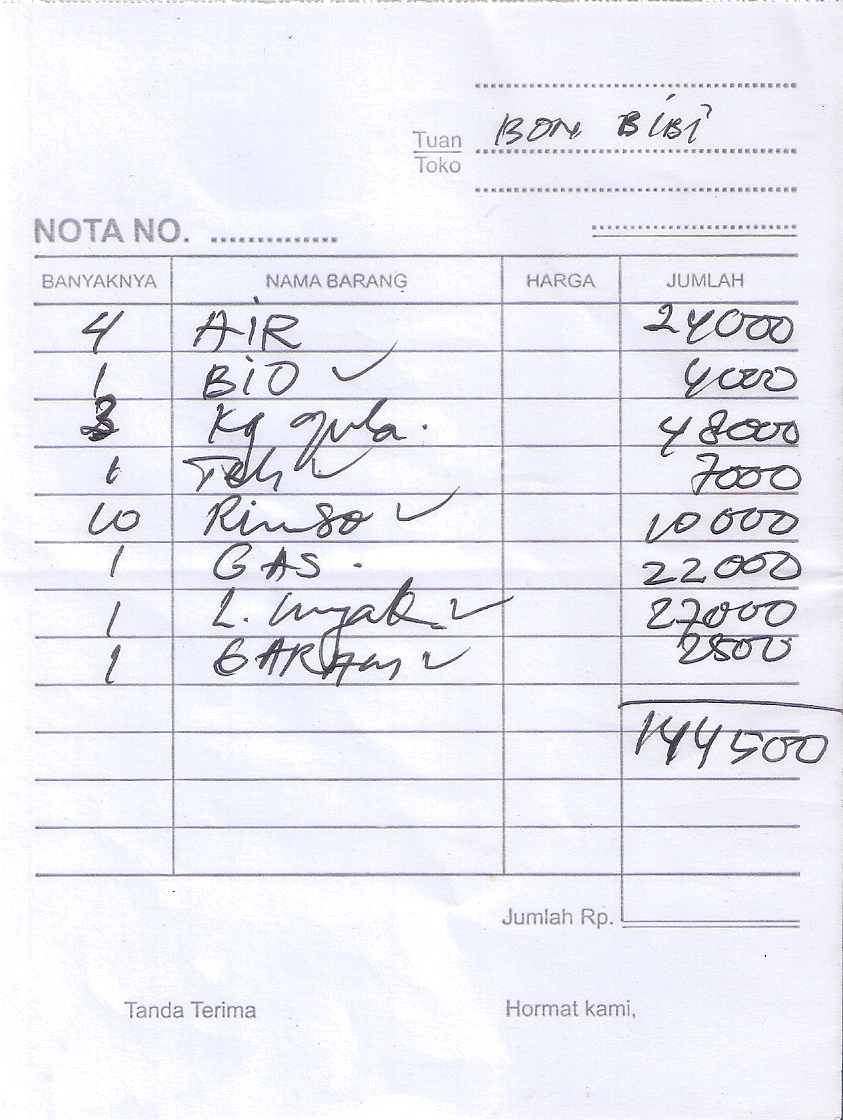 Tuan BON BIBI
Toko
NOTA NO. ................
BANYAKNYA NAMA BARANG HARGA JUMLAH
4 AIR 24000
1 BIO ✓ 4000
3 Kg gula. 48000
1 Teh ✓ 7000
10 Rinso ✓ 10000
1 GAS . 22000
1 L. minyak ✓ 27000
1 GARAM ✓ 2500
144500
Jumlah Rp.
Tanda Terima Hormat kami,